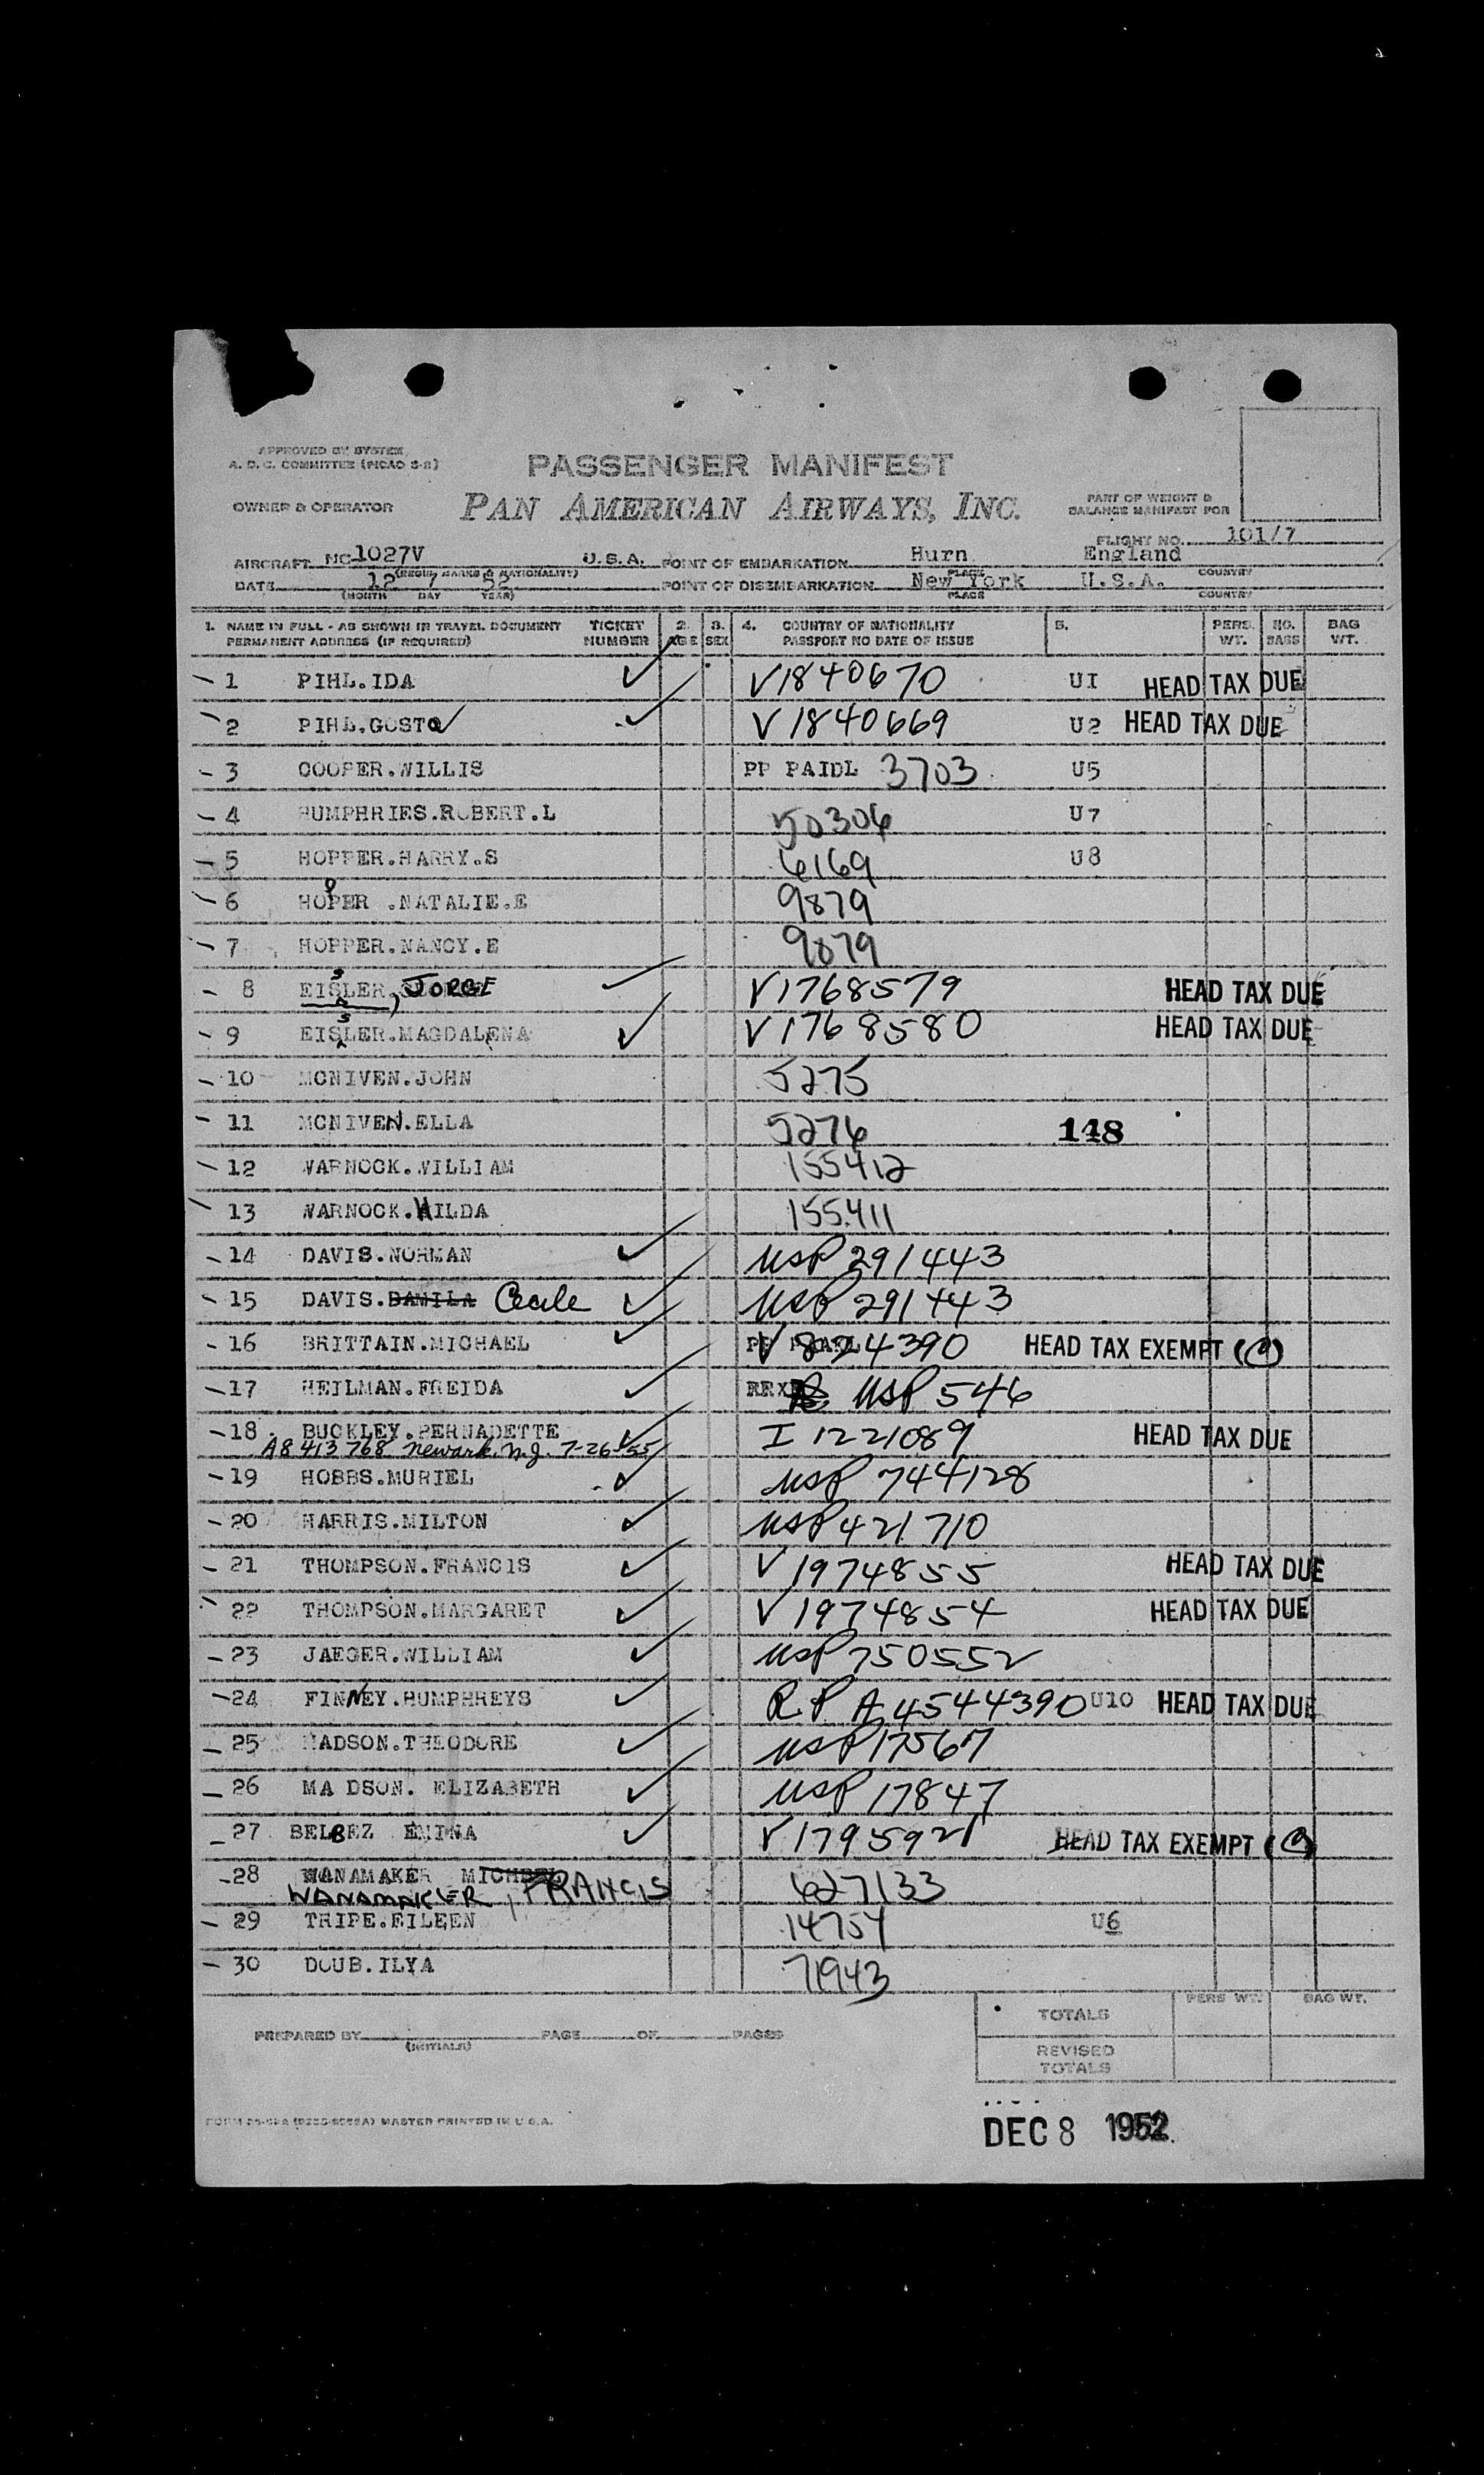 APPROVED BY SYSTEM
A. D. C. COMMITTEE (PICAO S-2)
PASSENGER MANIFEST
OWNER & OPERATOR PAN AMERICAN AIRWAYS, INC. PART OF WEIGHT &
BALANCE MANIFEST FOR
FLIGHT NO. 101/7
AIRCRAFT NC 1027V U.S.A. POINT OF EMBARKATION Hurn England
(REGIS. MARKS & NATIONALITY) PLACE COUNTRY
DATE 12 7 52 POINT OF DISEMBARKATION New York U.S.A.
(MONTH DAY YEAR) PLACE COUNTRY
1. NAME IN FULL - AS SHOWN IN TRAVEL DOCUMENT TICKET 2. 3. 4. COUNTRY OF NATIONALITY 5. PERS. NO. BAG
PERMANENT ADDRESS (IF REQUIRED) NUMBER AGE SEX PASSPORT NO DATE OF ISSUE WT. BAGS WT.
1 PIHL.IDA V1840670 U1 HEAD TAX DUE
2 PIHL.GOSTA V1840669 U2 HEAD TAX DUE
3 COOPER.WILLIS PP PAIDL 3703 U5
4 HUMPHRIES.ROBERT.L 50306 U7
5 HOPPER.HARRY.S 6169 U8
6 HOPPER .NATALIE.E 9879
7 HOPPER.NANCY.E 9879
8 EISSLER, JORGE V1768579 HEAD TAX DUE
9 EISSLER.MAGDALENA V1768580 HEAD TAX DUE
10 MCNIVEN.JOHN 5275
11 MCNIVEN.ELLA 5276 148
12 WARNOCK.WILLIAM 155412
13 WARNOCK.HILDA 155411
14 DAVIS.NORMAN USP 291443
15 DAVIS.DAMILA Cecile USP 291443
16 BRITTAIN.MICHAEL V 824390 HEAD TAX EXEMPT
17 HEILMAN.FREIDA USP 546
18 BUCKLEY.BERNADETTE I 1221089 HEAD TAX DUE
A8 413 768 Newark, N.J. 7-26-55
19 HOBBS.MURIEL USP 744128
20 HARRIS.MILTON USP 421710
21 THOMPSON.FRANCIS V 1974855 HEAD TAX DUE
22 THOMPSON.MARGARET V 1974854 HEAD TAX DUE
23 JAEGER.WILLIAM USP 750552
24 FINNEY.HUMPHREYS R.P. A 4544390 U10 HEAD TAX DUE
25 MADSON.THEODORE USP 17567
26 MA DSON. ELIZABETH USP 17847
27 BELBEZ EMINA V 1795921 HEAD TAX EXEMPT
28 WANAMAKER MICHAEL 627133
WANAMAKER, FRANCIS
29 TRIPE.EILEEN 14754 U6
30 DOUB.ILYA 71943
TOTALS PERS WT. BAG WT.
PREPARED BY (INITIALS) PAGE OF PAGES
REVISED
TOTALS
MASTER PRINTED IN U.S.A.
DEC 8 1952